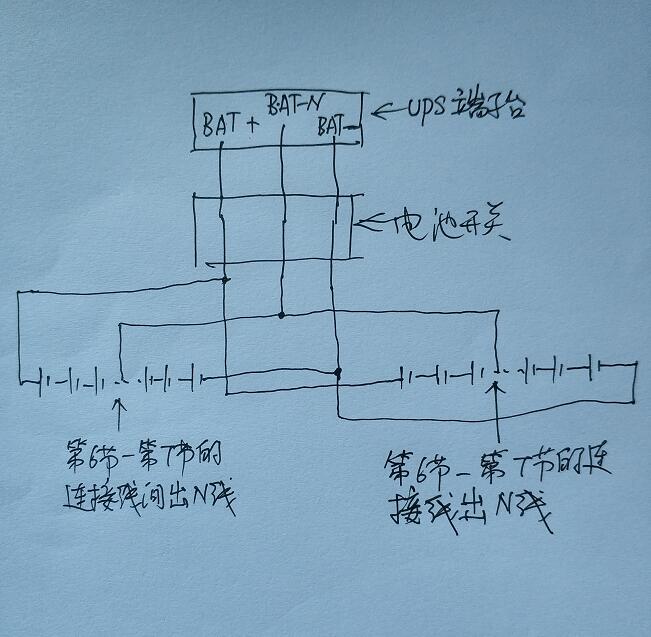 BAT+ BAT-N BAT-
←UPS端子台
←电池开关
第6节-第7节的
连接线间出N线
第6节-第7节的连
接线出N线